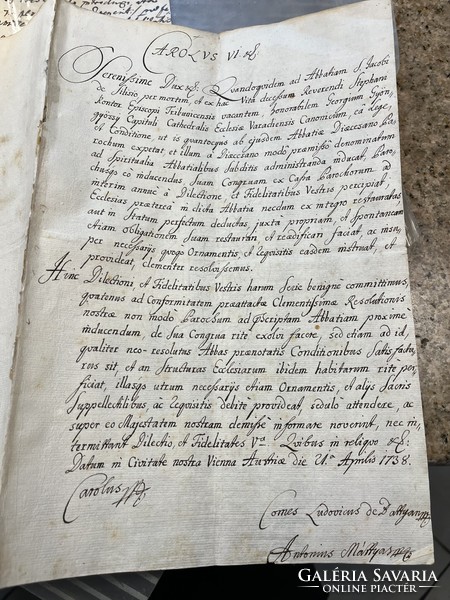 CAROLVS VI. &c.
Serenissime Dux &c. Quandoquidem ad Abbatiam S. Jacobi
de Silisio per mortem, et ex hac Vita decessum Reverendi Stephani
Kontor Episcopi Tribunicensis vacantem, honorabilem Georgium Gyön,
gyössy Capituli Cathedralis Ecclesiæ Varadiensis Canonicum, ea Lege
et Conditione, ut is quantocyus ab ejusdem Abbatiæ Diœcesano Pa,
rochum expetat, et illum à Diœcesano modo præmisso denominatum
ad Spiritualia Abbatialibus Subditis administranda inducat, Paro,
choque eo inducendo, Suam Congruam ex Cassa Parochorum ad
interim annuè à Dilectione, et Fidelitatibus Vestris percipiat,
Ecclesias præterea in dicta Abbatia necdum ex integro restauratas
aut in Statum perfectum deductas, juxta propriam, et Spontaneam
Etiam obligationem Suam restaurari, et readificari faciat, ac insu,
per necessarijs quoque Ornamentis, et Requisitis easdem instruat, et
provideat, Clementer resolvissemus.
Hinc Dilectioni, et Fidelitatibus Vestris harum Serie benignè committimus,
quatenus ad Conformitatem præattactæ Clementissimæ Resolutionis
nostræ non modò Parochum ad præscriptam Abbatiam proximè
inducendum, de Sua Congrua ritè exolvi facere, sed etiam ad id,
qualiter neo-resolutus Abbas prænotatis Conditionibus Satis factu,
rus sit, et an Structuras Ecclesiarum ibidem habitarum ritè per,
ficiat, illasque utrum necessarijs etiam Ornamentis, et alijs Sacris
Suppellectilibus, ac Requisitis debitè provideat, sedulò attendere, ac
super eo Majestatem nostram demissè informare noverint, nec in,
termittant Dilectio, et Fidelitates Væ. Quibus in reliquo &c.
Datum in Civitate nostra Vienna Austriæ die Aprilis 1738.
Carolus
Comes Ludovicus de Battyan
Antonius Mattyas
GALÉRIA SAVARIA
ONLINE PIACTÉR